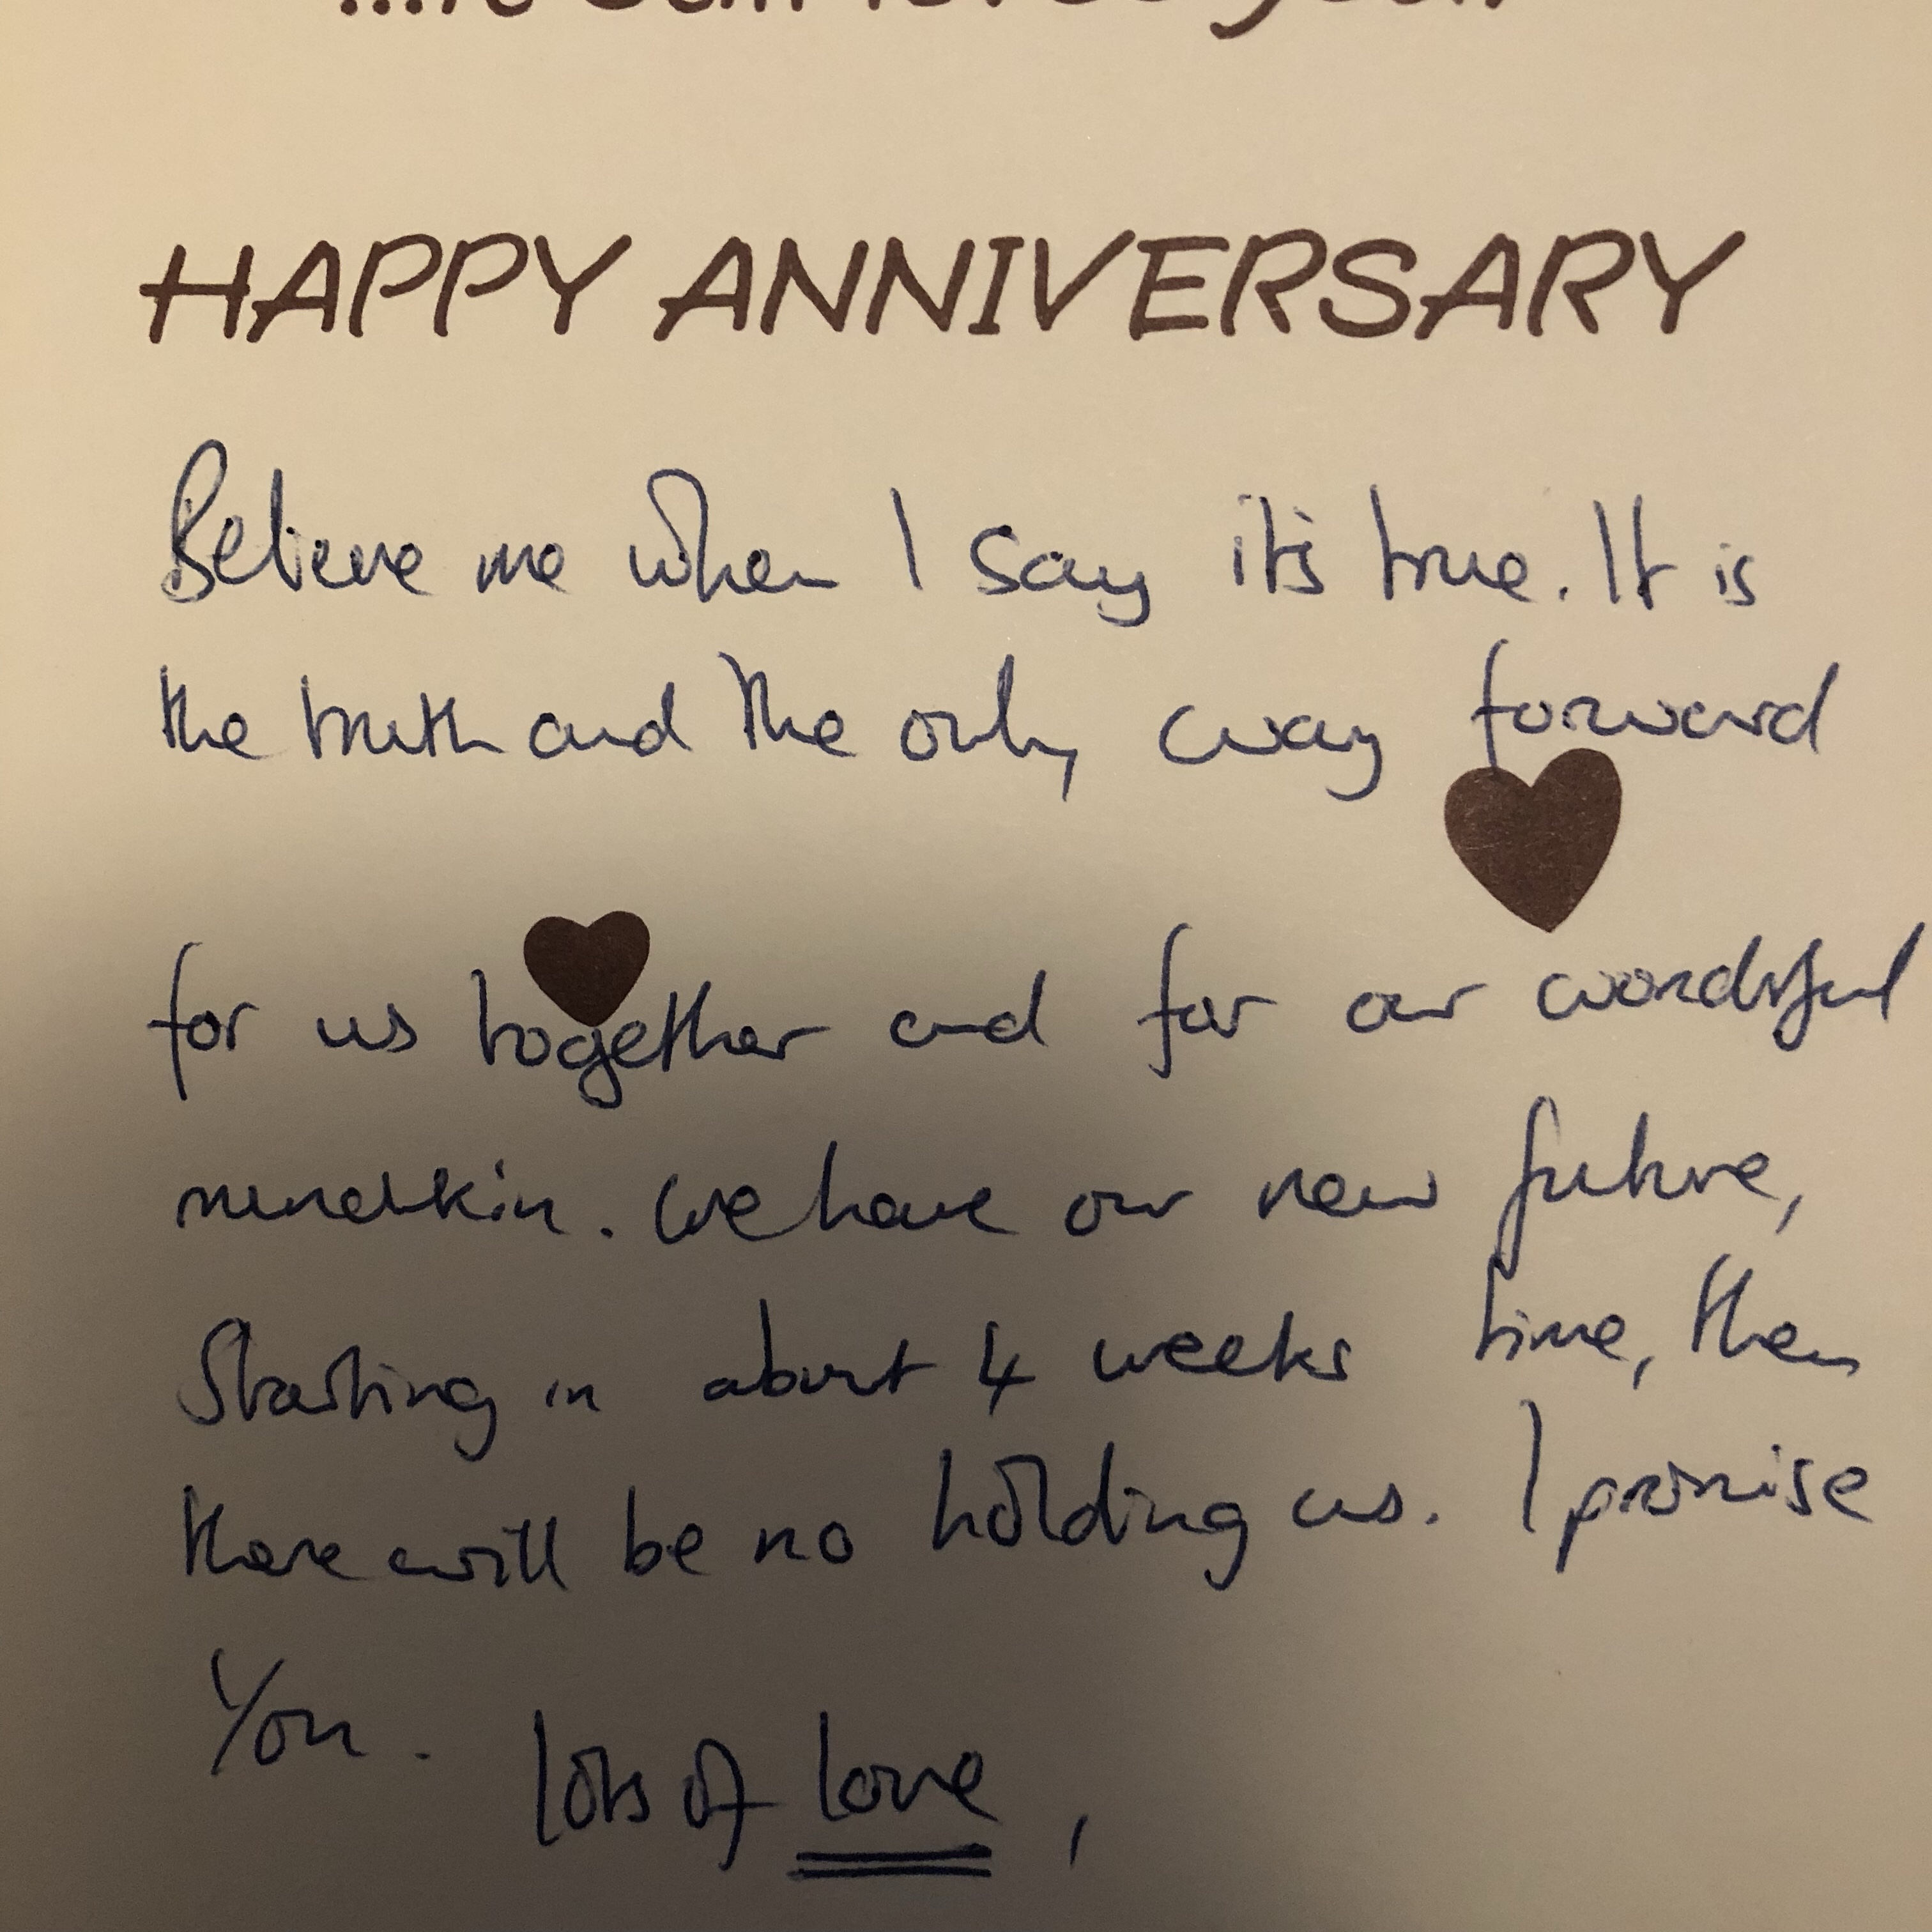 HAPPY ANNIVERSARY
Believe me when I say it's true. It is
the truth and the only way forward
for us together and for our wonderful
We have our new future,
Starting in about 4 weeks time, then
there will be no holding us. I promise
You.
lots of love,